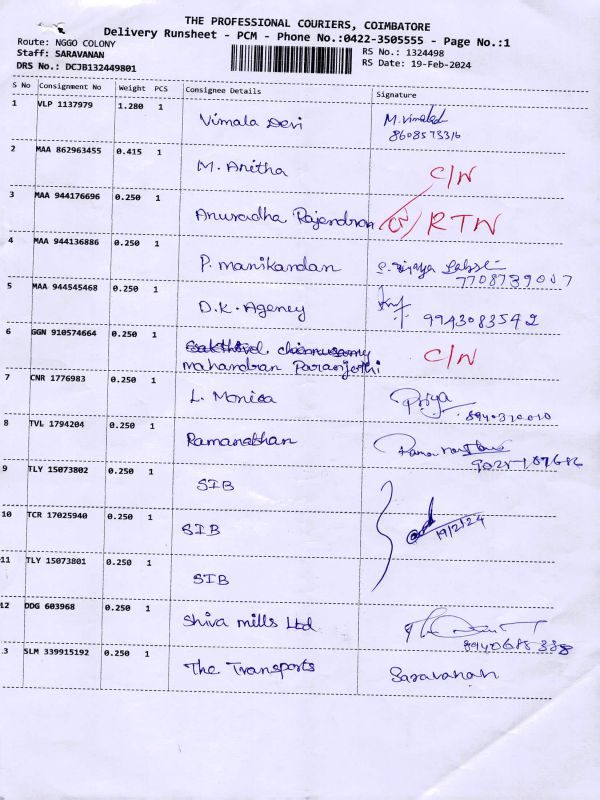 THE PROFESSIONAL COURIERS, COIMBATORE
Delivery Runsheet - PCM - Phone No.:0422-3505555 - Page No.:1
Route: NGGO COLONY
RS No.: 1324498
Staff: SARAVANAN
RS Date: 19-Feb-2024
DRS No.: DCJB132449801
S No Consignment No Weight PCS Consignee Details Signature
1 VLP 1137979 1.280 1 Vimala Devi M.Vimala
8608573316
2 MAA 862963455 0.415 1 M. Anitha C/N
3 MAA 944176696 0.250 1 Anuradha Rajendran RTN
4 MAA 944136886 0.250 1 P. Manikandan
7708739007
5 MAA 944545468 0.250 1 D.K. Agency 9943083542
6 GGN 910574664 0.250 1 C/N
mahandran Paranjothi
7 CNR 1776983 0.250 1 L. Monica Priya
8940310010
8 TVL 1794204 0.250 1 Ramanathan
9 TLY 15073802 0.250 1 SIB
10 TCR 17025940 0.250 1 SIB 19/2/24
11 TLY 15073801 0.250 1 SIB
12 DDG 603968 0.250 1 Shiva mills Ltd
8940685388
13 SLM 339915192 0.250 1 The Transports Saravanan